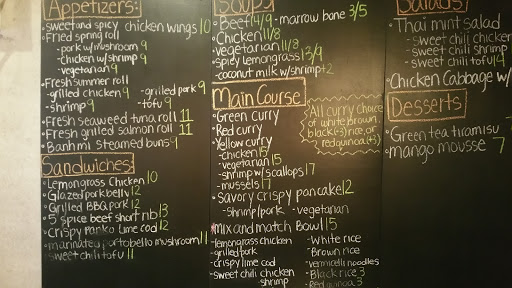 Appetizers:
•sweet and spicy chicken wings 10
•Fried spring roll
-pork w/mushroom 9
-chicken w/shrimp 9
-vegetarian 9
•Fresh summer roll
-grilled chicken 9 -grilled pork 9
-shrimp 9 -tofu 9
•Fresh seaweed tuna roll 11
•Fresh grilled salmon roll 11
•Banh mi steamed buns 9
Sandwiches
•Lemongrass Chicken 10
•Glazed porkbelly 12
•Grilled BBQ pork 12
•5 spice beef short rib 13
•crispy panko lime cod 12
•marinated portobello mushroom 11
•sweet chili tofu 11
Soups
•Beef 4/9 -marrow bone 3/5
•Chicken 11/8
•vegetarian 11/8
•spicy lemongrass 3/9
-coconut milk w/shrimp +2
Main Course
•Green curry
•Red curry
•Yellow curry
-chicken 15
-vegetarian 15
-shrimp w/scallops 17
-mussels 17
All curry choice
of white, brown,
black (+3) rice, or
red quinoa (+3)
•Savory crispy pancake 12
-shrimp/pork -vegetarian
•mix and match Bowl 15
-lemongrass chicken -White rice
-grilled pork -Brown rice
-crispy lime cod -vermicelli noodles
-sweet chili chicken -Black rice 3
shrimp -Red quinoa 3
Salads
•Thai mint salad
-sweet chili chicken
-sweet chili shrimp
-sweet chili tofu 14
•Chicken Cabbage w/
Desserts
•Green tea tiramisu 7
•mango mousse 7